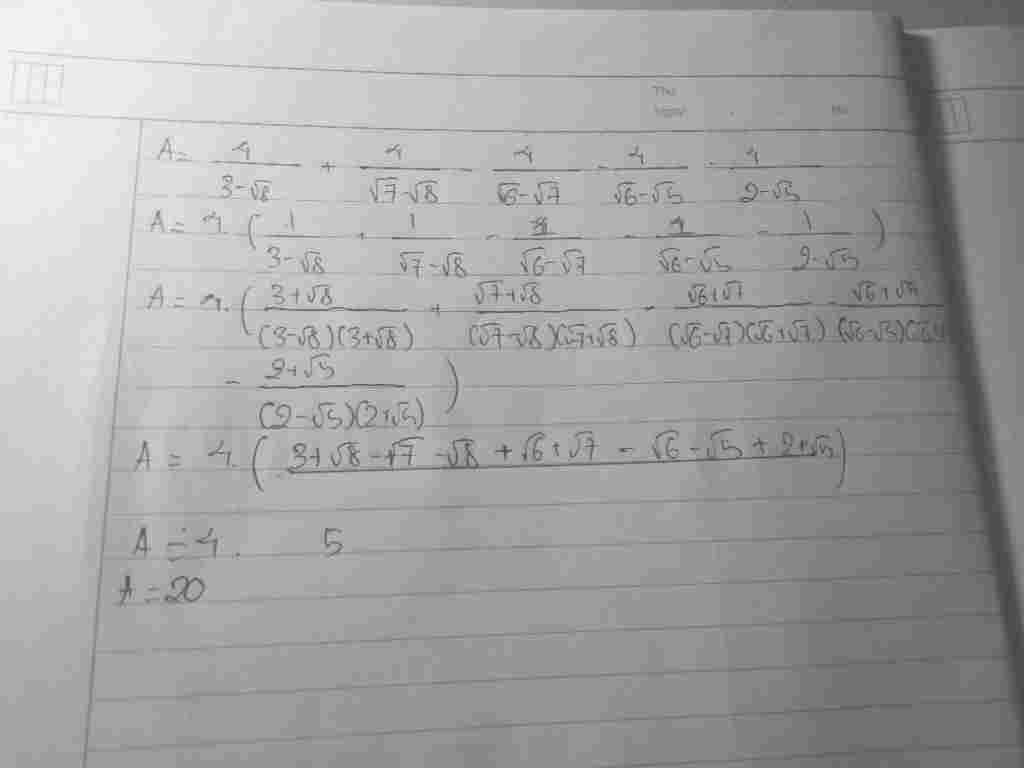 A = 4/(3-√8) + 4/(√7-√8) - 4/(√6-√7) - 4/(√6-√5) - 4/(2-√5)
A = 4.(1/(3-√8) + 1/(√7-√8) - 1/(√6-√7) - 1/(√6-√5) - 1/(2-√5))
A = 4.((3+√8)/((3-√8)(3+√8)) + (√7+√8)/((√7-√8)(√7+√8)) - (√6+√7)/((√6-√7)(√6+√7)) -
- (2+√5)/((2-√5)(2+√5)))
A = 4.(3+√8-√7-√8+√6+√7-√6-√5+2+√5)
A = 4. 5
A = 20